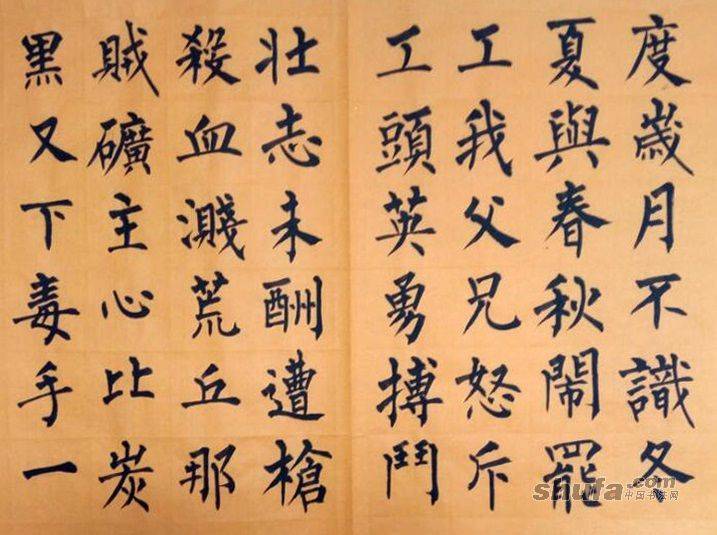 度歲月不識冬
夏與春秋鬧罷
工我父兄怒斥
工頭英勇搏鬥
壯志未酬遭槍
殺血濺荒丘那
賊礦主心比炭
黑又下毒手一
shufa.com
中国书法网